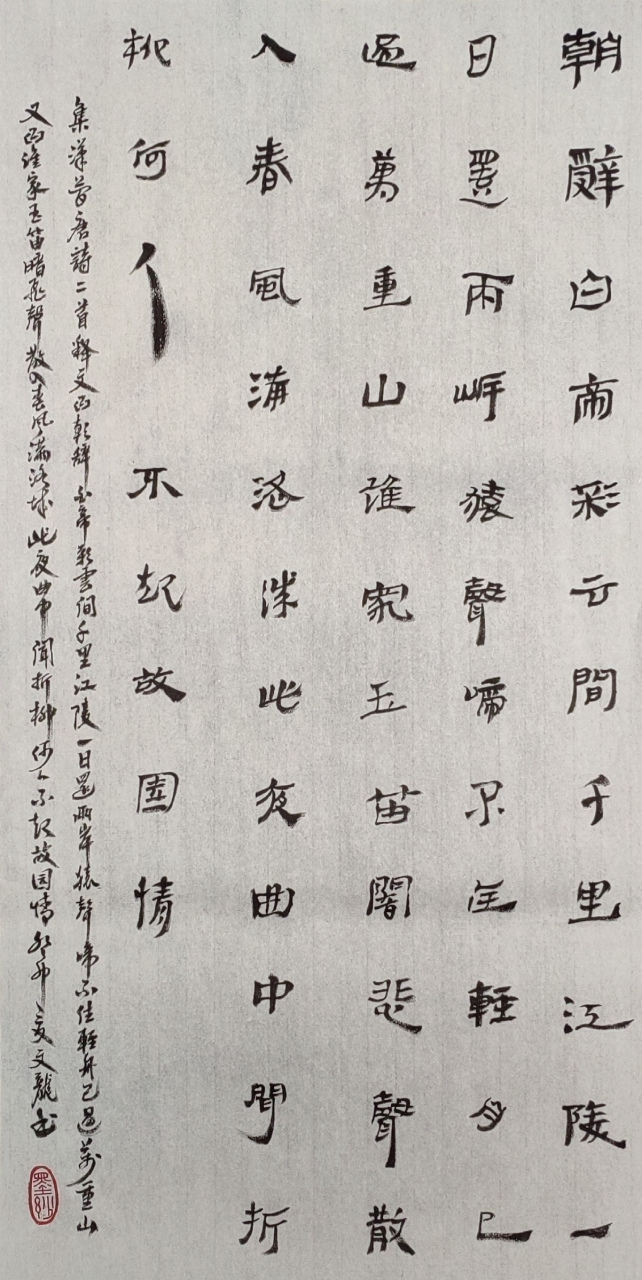 朝辭白帝彩云間千里江陵一
日還兩岸猿聲啼不住輕舟已
過萬重山誰家玉笛闇飛聲散
入春風滿洛城此夜曲中聞折
柳何人不起故園情
集漢簡唐詩二首釋文曰朝辭白帝彩雲間千里江陵一日還兩岸猿聲啼不住輕舟已過萬重山
又曰誰家玉笛暗飛聲散入春風滿洛城此夜曲中聞折柳何人不起故园情癸卯之夏文龍書